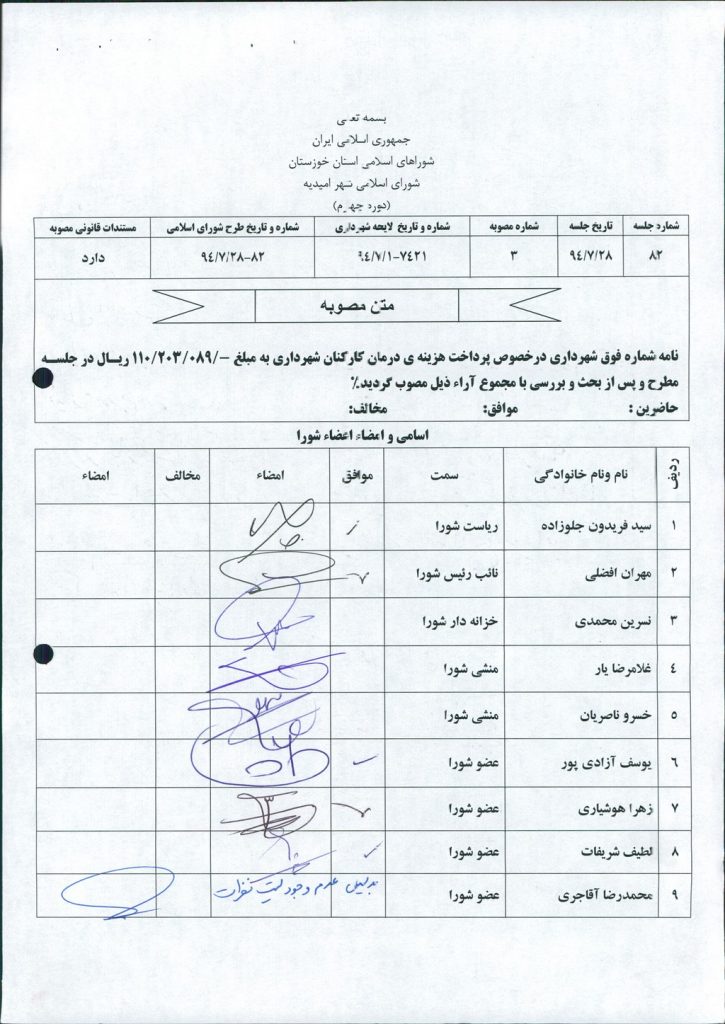 بسمه تعالی
جمهوری اسلامی ایران
شوراهای اسلامی استان خوزستان
شورای اسلامی شهر امیدیه
(دوره چهارم)
شماره جلسه تاریخ جلسه شماره مصوبه شماره و تاریخ لایحه شهرداری شماره و تاریخ طرح شورای اسلامی مستندات قانونی مصوبه
۸۲ ۹٤/۷/۲۸ ۳ ۹٤/۷/۱-۷٤۲۱ ۹٤/۷/۲۸-۸۲ دارد
متن مصوبه
نامه شماره فوق شهرداری درخصوص پرداخت هزینه ی درمان کارکنان شهرداری به مبلغ -/۱۱۰/۲۰۳/۰۸۹ ریـال در جلسـه
مطرح و پس از بحث و بررسی با مجموع آراء ذیل مصوب گردید.٪
حاضرین : موافق: مخالف:
اسامی و امضاء اعضاء شورا
ردیف نام ونام خانوادگی سمت موافق امضاء مخالف امضاء
۱ سید فریدون جلوزاده ریاست شورا
۲ مهران افضلی نائب رئیس شورا
۳ نسرین محمدی خزانه دار شورا
٤ غلامرضا یار منشی شورا
۵ خسرو ناصریان منشی شورا
٦ یوسف آزادی پور عضو شورا
۷ زهرا هوشیاری عضو شورا
۸ لطیف شریفات عضو شورا
۹ محمدرضا آقاجری عضو شورا بدلیل عدم وجود لیست نفرات